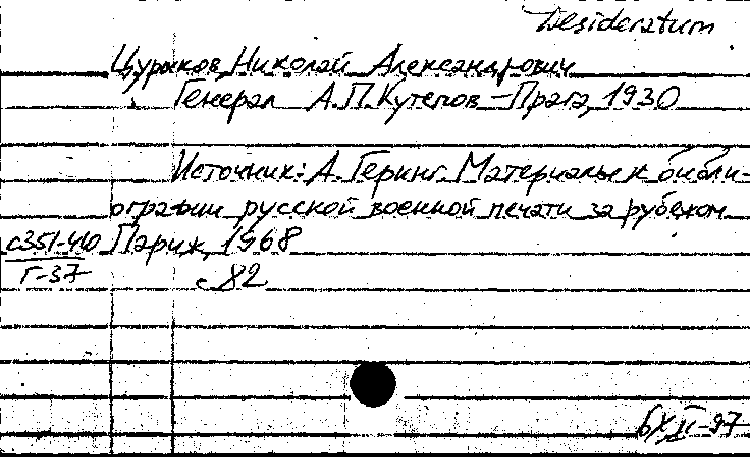 Desideratum
Цуриков, Николай Александрович
Генерал А.П.Кутепов – Прага, 1930
Источник: А. Геринг. Материалы к библи-
ографии русской военной печати за рубежом
с351-410 Париж, 1968
Г-37 с 82
6XII-97